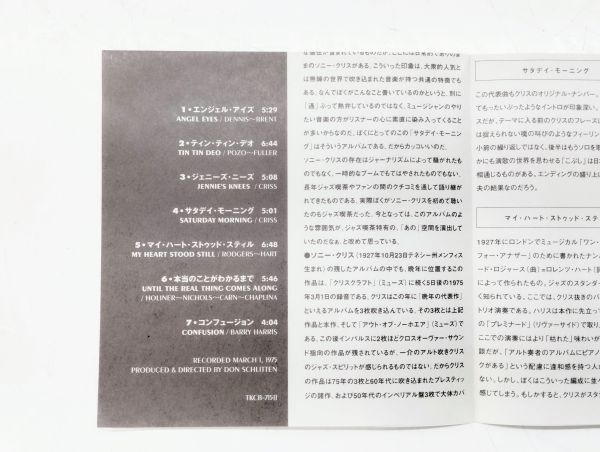 1・エンジェル・アイズ 5:29
ANGEL EYES / DENNIS~BRENT
2・ティン・ティン・デオ 6:44
TIN TIN DEO / POZO~FULLER
3・ジェニーズ・ニーズ 5:08
JENNIE'S KNEES / CRISS
4・サタデイ・モーニング 5:01
SATURDAY MORNING / CRISS
5・マイ・ハート・ストゥッド・スティル 6:48
MY HEART STOOD STILL / RODGERS~HART
6・本当のことがわかるまで 5:46
UNTIL THE REAL THING COMES ALONG
/ HOLINER~NICHOLS~CARN~CHAPLINA
7・コンフュージョン 4:04
CONFUSION / BARRY HARRIS
RECORDED MARCH 1, 1975
PRODUCED & DIRECTED BY DON SCHLITTEN
TKCB-71511
まのソニー・クリスがある。こういった印象は、大衆的人気と
は無縁の世界で吹き込まれた音楽が持つ共通の特徴でも
ある。なんでぼくがこんなこと書いているのかというと、別に
「通」ぶって熱弁しているのではなく、ミュージシャンのやり
たい音楽の方がリスナーの心に素直に染み入ってくること
が多いからなのだ。ぼくにとってのこの「サタデイ・モーニン
グ」はそういうアルバムである。だからカッコいいのだ。
ソニー・クリスの存在はジャーナリズムによって騒がれたもの
でもなく、一時的なブームでもてはやされたものでもない。
長年ジャズ喫茶やファンの間のクチコミを通して語り継が
れてきたものである。実際ぼくがソニー・クリスを初めて聴い
たのもジャズ喫茶だった。今となっては、このアルバムのよ
うな雰囲気が、ジャズ喫茶特有の、「あの」空間を演出して
いたのだなぁ、と改めて思っている。
●ソニー・クリス（1927年10月23日テネシー州メンフィス
生まれ）の残したアルバムの中でも、晩年に位置するこの
作品は、「クリスクラフト」（ミューズ）に続く5日後の1975
年3月1日の録音である。クリスはこの年に「晩年の代表作」
といえるアルバムを3枚吹き込んでいる。その3枚とは上記
作品と本作、そして「アウト・オブ・ノーホエア」（ミューズ）で
ある。この後インパルスに2枚ほどクロスオーヴァー・サウン
ド指向の作品が残されているが、一介のアルト吹きクリス
のジャズ・スピリットが感じられるものではない。だからクリス
の作品は75年の3枚と60年代に吹き込まれたプレスティッ
ジの諸作、および50年代のインペリアル盤3枚で大体カバ
サタデイ・モーニング
この代表曲もクリスのオリジナル・ナンバー。
てもったいぶったようなイントロが印象深い。
スだが、テーマに入る前のクリスのフレーズに
は捉えられない魂の叫びのようなフィーリン
小節の繰り返しではなく、後半はもうソロを
かにも演歌の世界を思わせる「こぶし」は日
相通じるものがある。エンディングの盛り上
夫の結果なのだろう。
マイ・ハート・ストゥッド・ステ
1927年にロンドンでミュージカル「ワン・
フォー・アナザー」のために書かれたナンバ
ード・ロジャース（曲）=ロレンツ・ハート（詞
によって作られたもの。ジャズのスタンダー
く知られている。ここでは、クリス抜きのバ
トリオ演奏である。ハリスは本作に先立って
の「プレミナード」（リヴァーサイド）で取り
ここでの演奏にはより「枯れた」味わいが
談だが、「アルト奏者のアルバムにピアノ
クがある」という配慮に違和感を持つ人
ない。しかし、ぼくはこういった編成に並々
感じてしまう。もしかすると、クリスがスタ